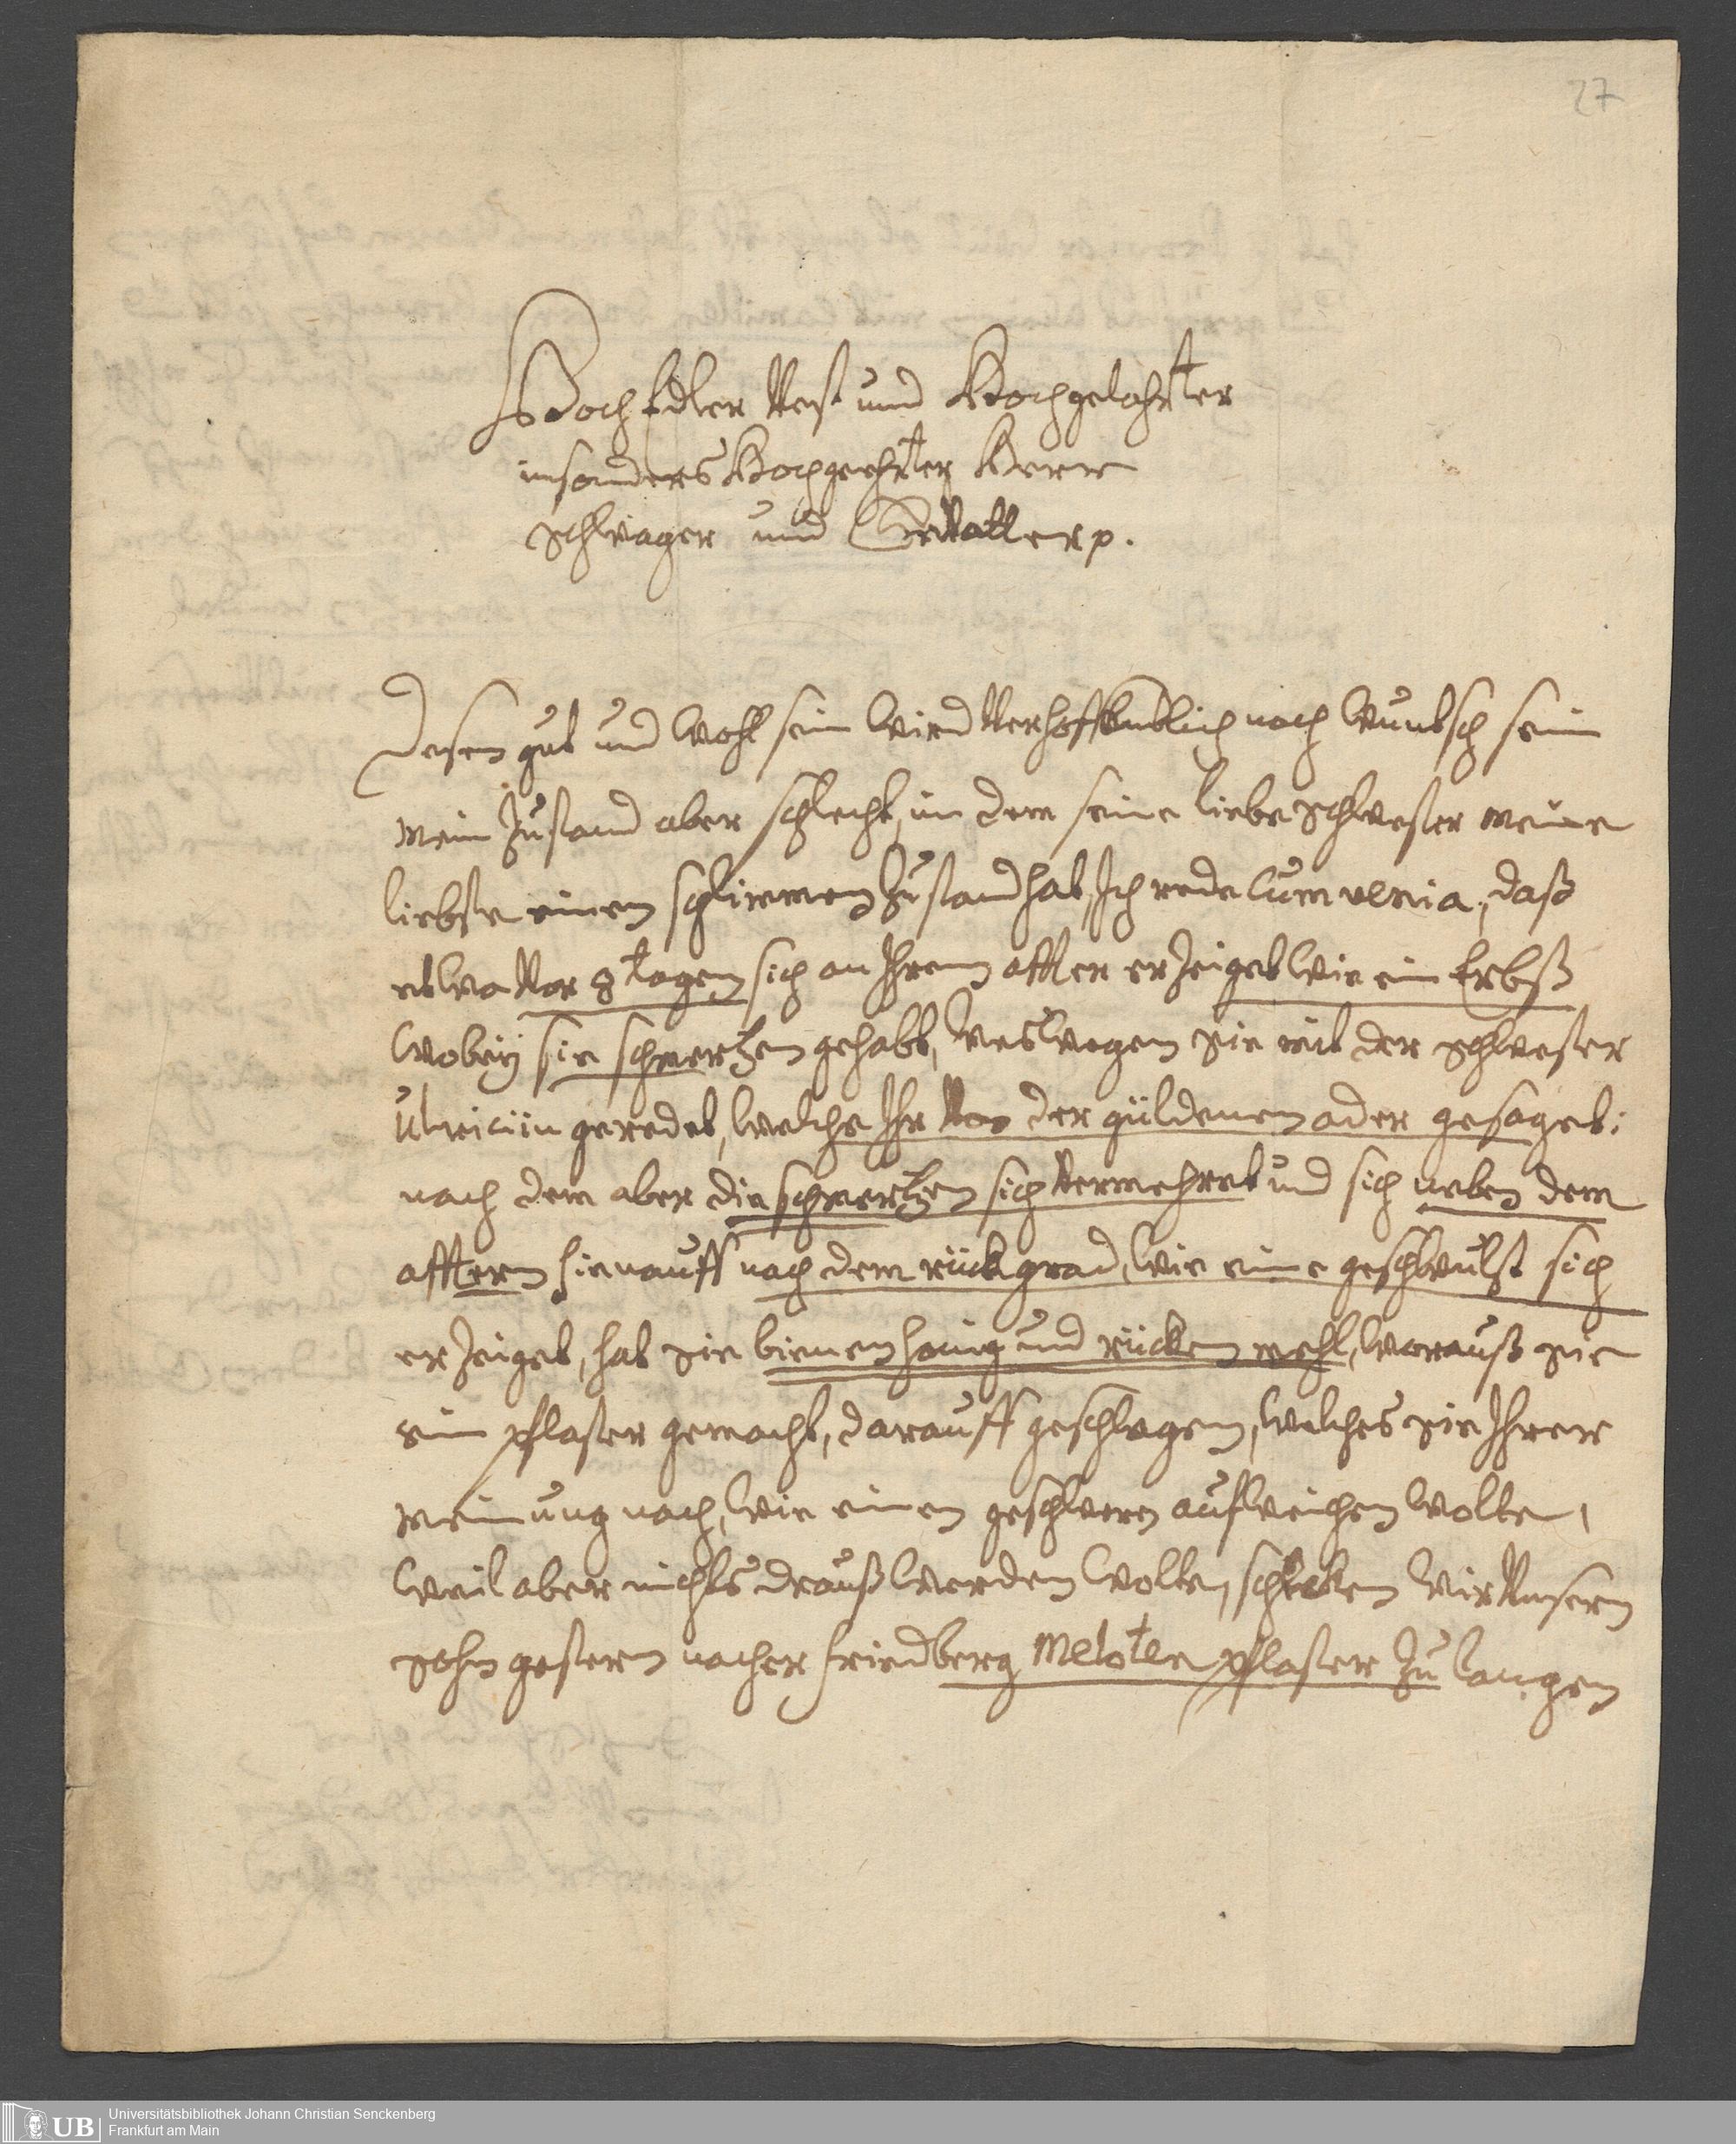 27
HochEdler Vest und Hochgelahrter
insonders Hochgeehrter Herr
schwager und Gevatter p.
Desen gut und wohl sein wird verhoffendlich nach wuntsch sein
mein zustand aber schlecht, in dem seine liebe schwester meine
liebste einen schlimmen zustand hat, Ich rede cum venia, daß
etwa vor 8 tagen sich an Ihrem affter erzeiget wie ein Erbß
wobey sie schmertzen gehabt, weswegen sie mit der schwester
Ulricün geredet, welche Ihr von der güldenen ader gesaget:
nach dem aber die schmertzen sich vermehret und sich neben dem
afftern hienauff nach dem rückgrad, wie eine geschwulst sich
erzeiget, hat sie bienen honig und rücken mehl, worauß sie
ein pflaster gemacht, darauff geschlagen, welches sie Ihrer
meinung nach, wie einen geschweren aufweichen wolte,
weil aber nichts drauß werden wolte, schicken wir Unsern
sohn gestern nacher friedberg Meloten pflaster zu langen
UB
Universitätsbibliothek Johann Christian Senckenberg
Frankfurt am Main